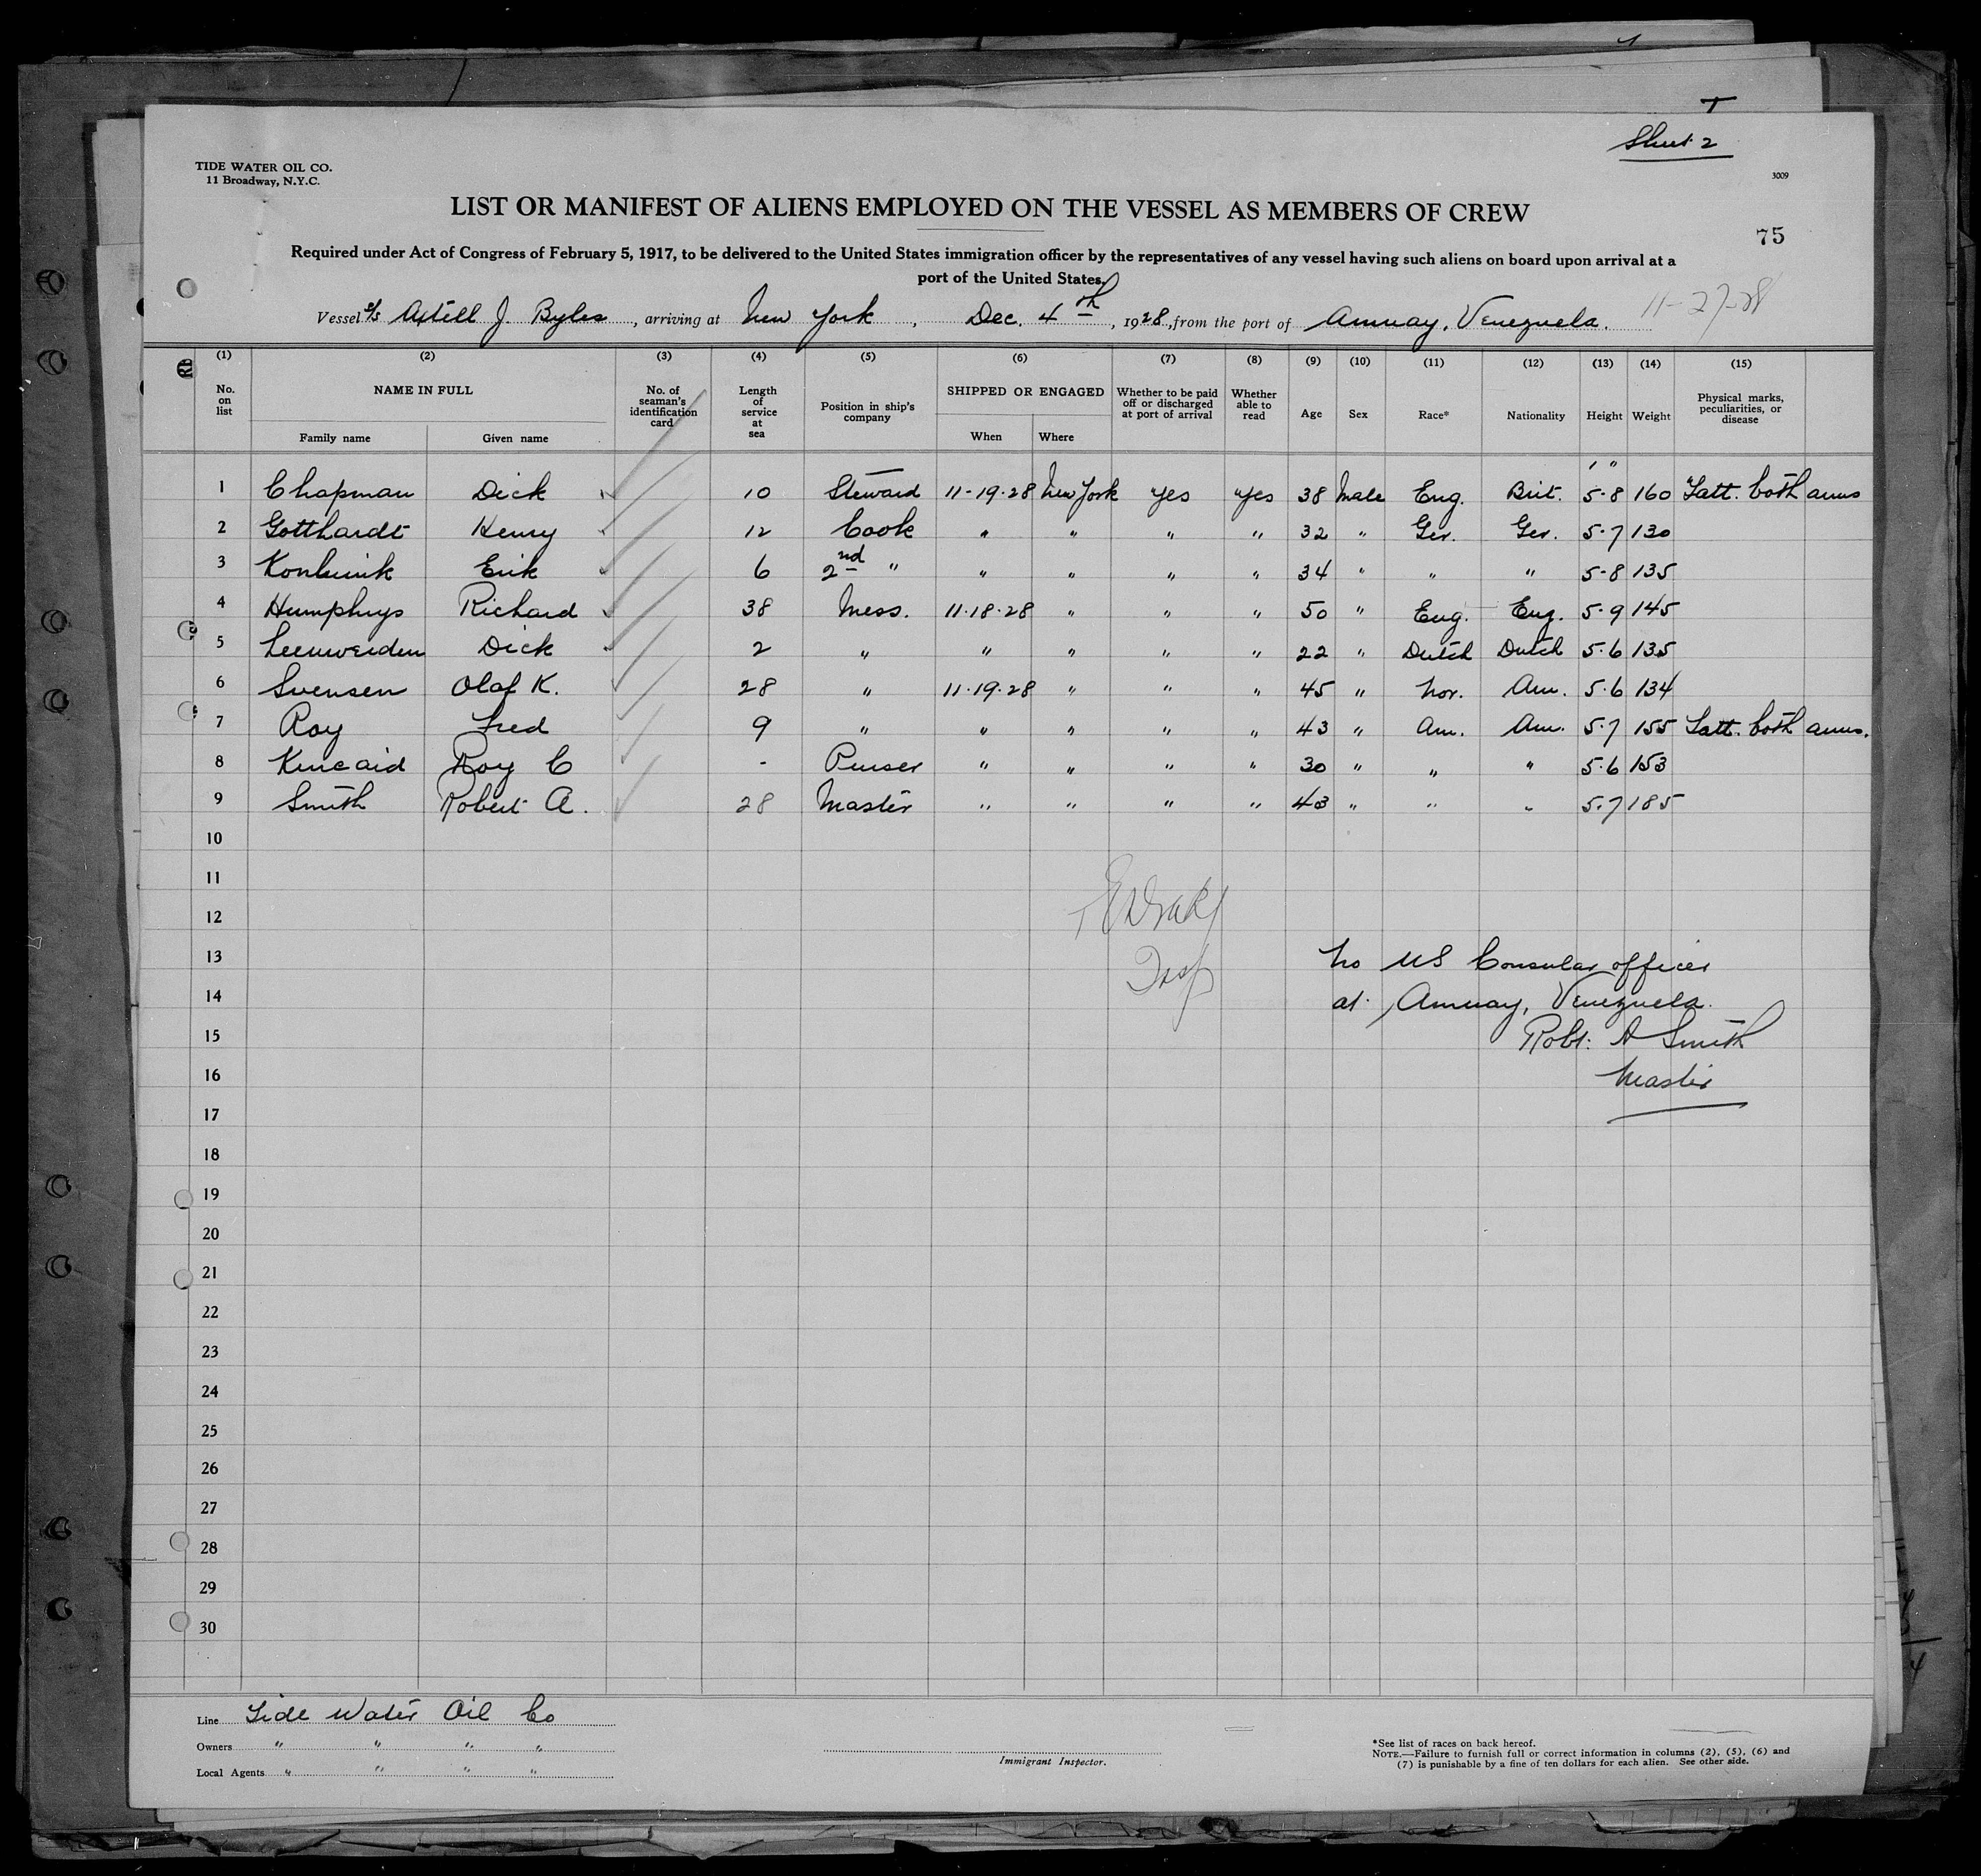 Sheet 2
TIDE WATER OIL CO.
11 Broadway, N.Y.C.
3009
LIST OR MANIFEST OF ALIENS EMPLOYED ON THE VESSEL AS MEMBERS OF CREW
75
Required under Act of Congress of February 5, 1917, to be delivered to the United States immigration officer by the representatives of any vessel having such aliens on board upon arrival at a
port of the United States.
Vessel S/S Axtell J. Byles, arriving at New York, Dec. 4th, 1928, from the port of Amuay, Venezuela. 11-27-28
(1) (2) (3) (4) (5) (6) (7) (8) (9) (10) (11) (12) (13) (14) (15)
No. on list NAME IN FULL No. of seaman's identification card Length of service at sea Position in ship's company SHIPPED OR ENGAGED Whether to be paid off or discharged at port of arrival Whether able to read Age Sex Race* Nationality Height Weight Physical marks, peculiarities, or disease
Family name Given name When Where
1 Chapman Dick 10 Steward 11-19-28 New York Yes Yes 38 Male Eng. Brit. 5-8 160 Tatt. both arms
2 Gotthardt Henry 12 Cook " " " " 32 " Ger. Ger. 5-7 130
3 Erik 6 2nd " " " " " 34 " " " 5-8 135
4 Humphrys Richard 38 Mess. 11-18-28 " " " 50 " Eng. Eng. 5-9 145
5 Leeuwerden Dick 2 " " " " " 22 " Dutch Dutch 5-6 135
6 Svensen Olaf K. 28 " 11-19-28 " " " 45 " Nor. Am. 5-6 134
7 Roy Fred 9 " " " " " 43 " Am. Am. 5-7 155 Tatt. both arms.
8 Kincaid Roy C - Purser " " " " 30 " " " 5-6 153
9 Smith Robert A. 28 Master " " " " 43 " " " 5-7 185
10
11
12
13 No US Consular officer
14 at Amuay, Venezuela.
15 Robt. A Smith
16 Master
17
18
19
20
21
22
23
24
25
26
27
28
29
30
Line Tide Water Oil Co
Owners " " " "
Local Agents " " " "
Immigrant Inspector.
*See list of races on back hereof.
NOTE.—Failure to furnish full or correct information in columns (2), (5), (6) and
(7) is punishable by a fine of ten dollars for each alien. See other side.